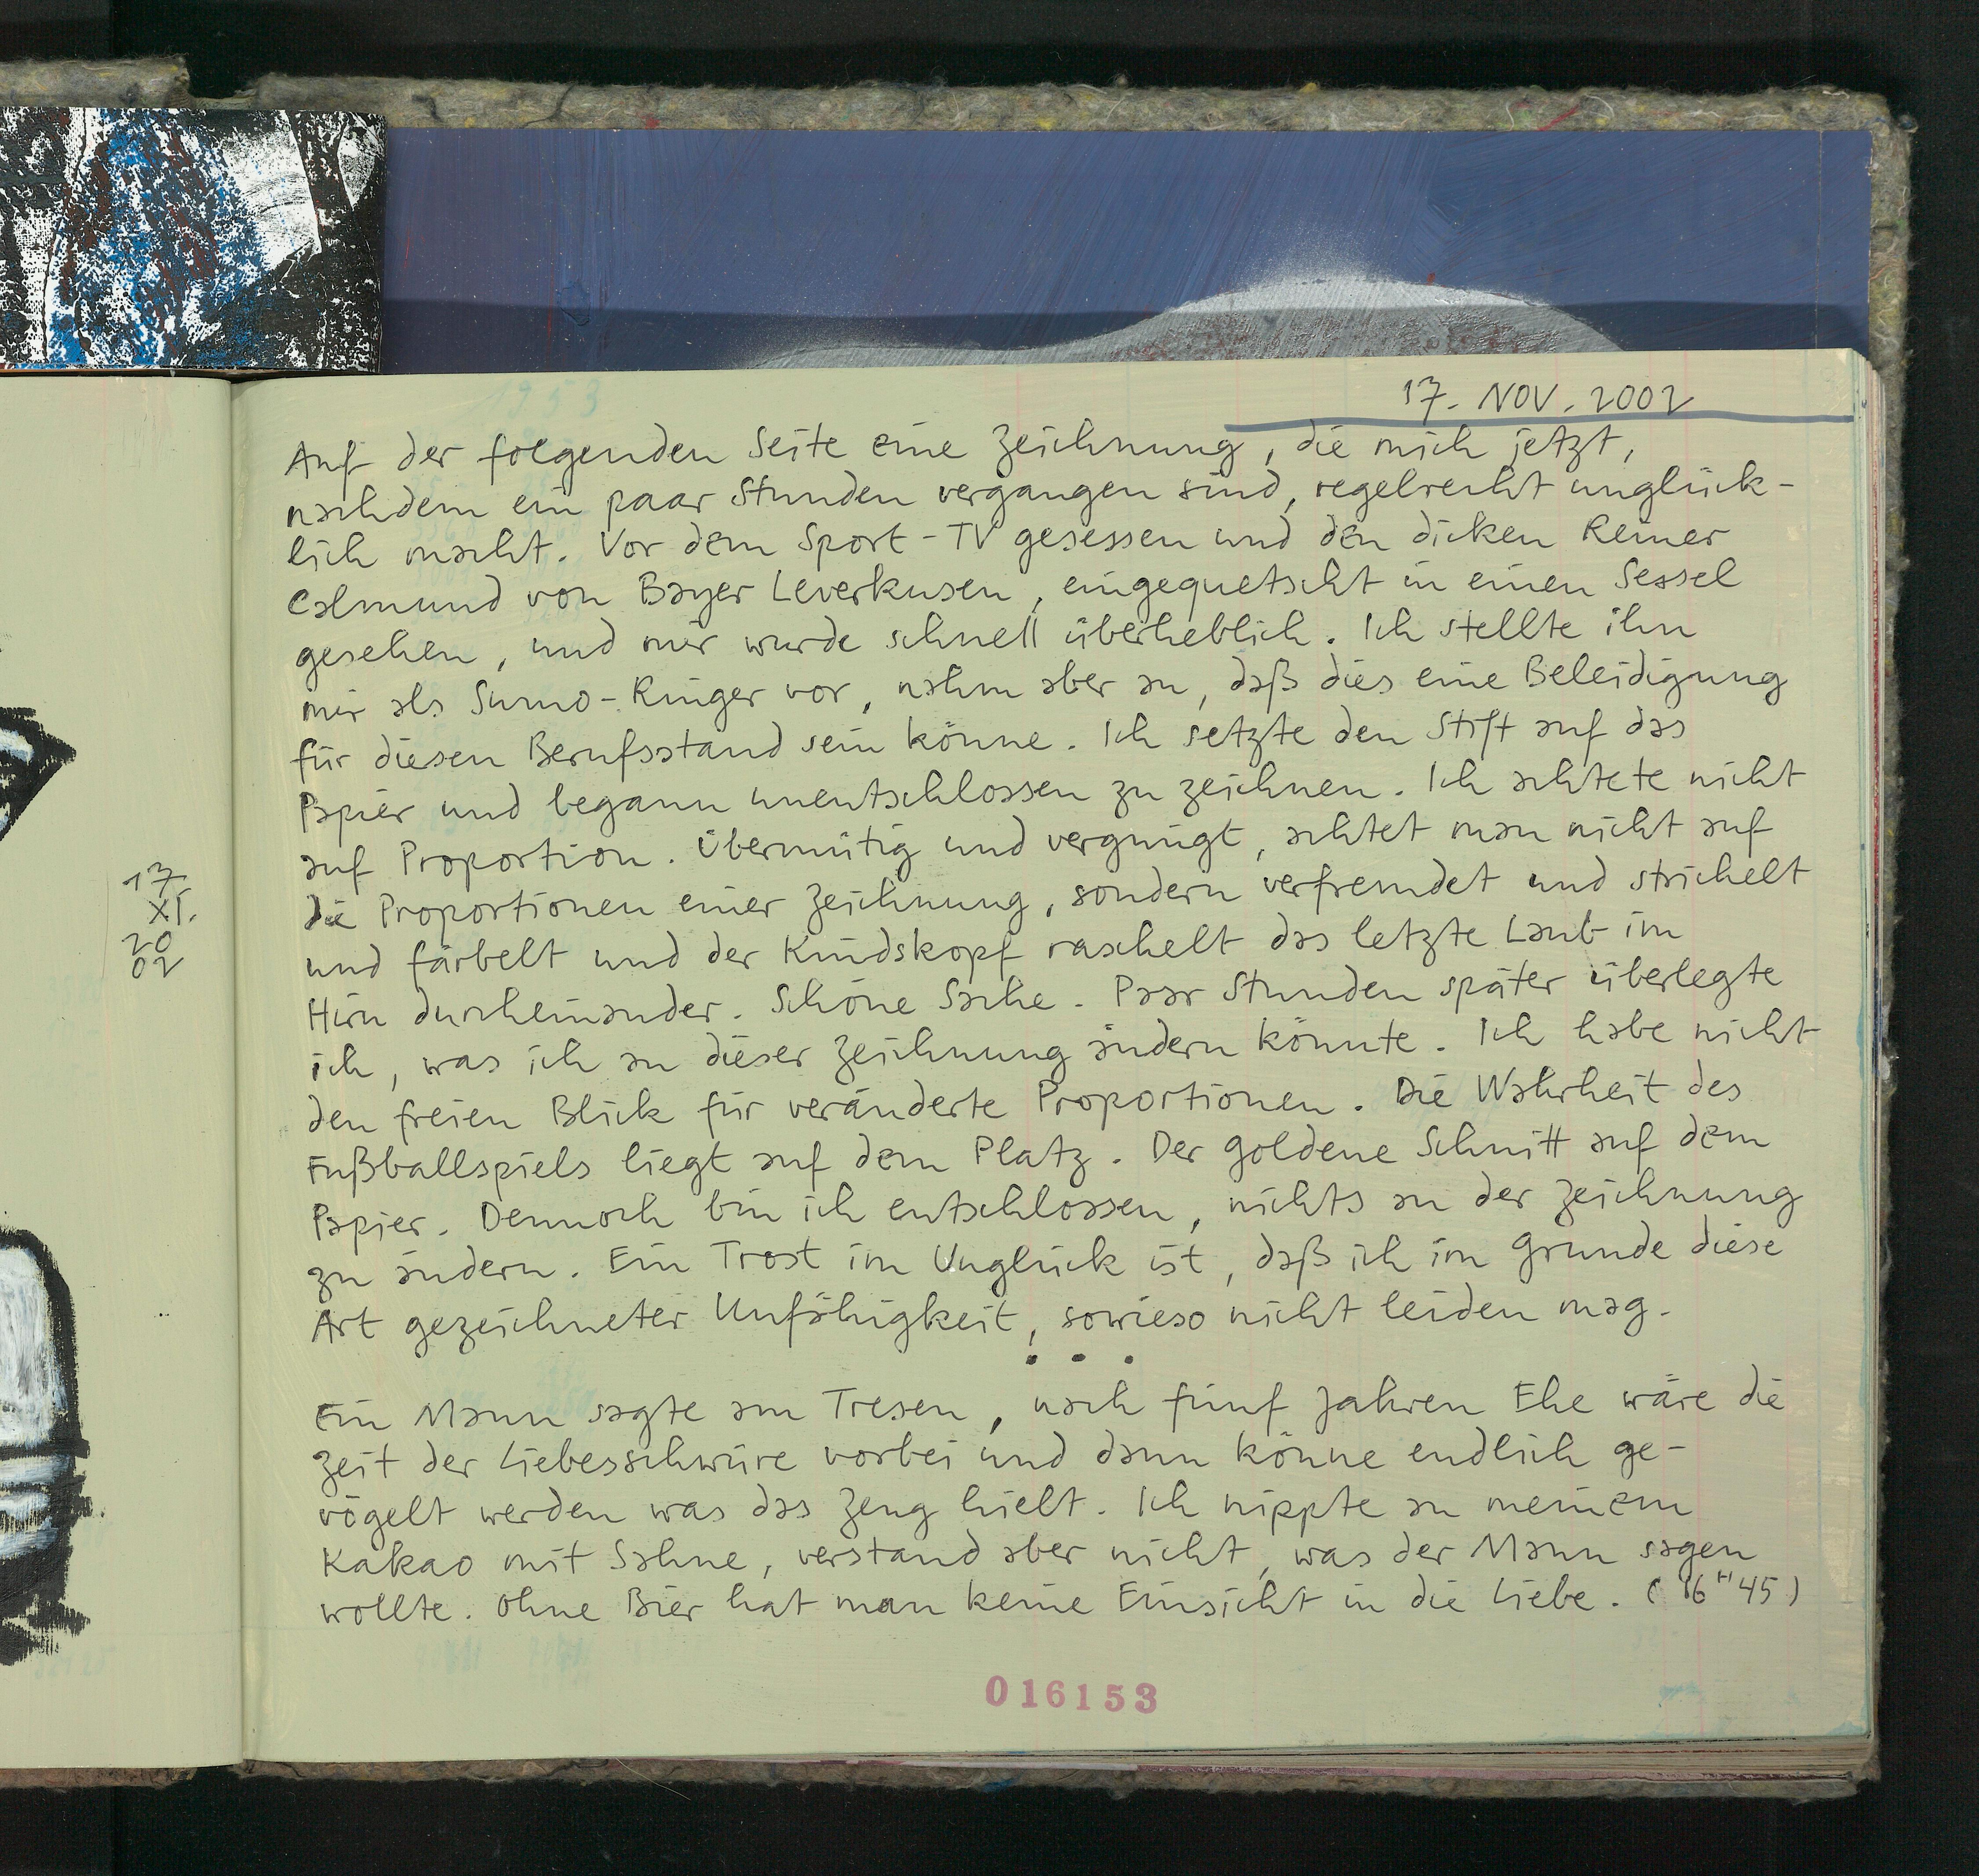 17. NOV. 2002
Auf der folgenden Seite eine Zeichnung, die mich jetzt,
nachdem ein paar Stunden vergangen sind, regelrecht unglück-
lich macht. Vor dem Sport-TV gesessen und den dicken Reiner
Calmund von Bayer Leverkusen, eingequetscht in einen Sessel
gesehen, und mir wurde schnell überheblich. Ich stellte ihn
mir als Sumo-Ringer vor, nahm aber an, daß dies eine Beleidigung
für diesen Berufsstand sein könne. Ich setzte den Stift auf das
Papier und begann unentschlossen zu zeichnen. Ich achtete nicht
auf Proportion. Übermütig und vergnügt, achtet man nicht auf
die Proportionen einer Zeichnung, sondern verfremdet und strichelt
und färbelt und der Kindskopf raschelt das letzte Laub im
Hirn durcheinander. Schöne Sache. Paar Stunden später überlegte
ich, was ich an dieser Zeichnung ändern könnte. Ich habe nicht
den freien Blick für veränderte Proportionen. Die Wahrheit des
Fußballspiels liegt auf dem Platz. Der goldene Schnitt auf dem
Papier. Dennoch bin ich entschlossen, nichts an der Zeichnung
zu ändern. Ein Trost im Unglück ist, daß ich im Grunde diese
Art gezeichneter Unfähigkeit, sowieso nicht leiden mag.
...
Ein Mann sagte am Tresen, nach fünf Jahren Ehe wäre die
Zeit der Liebesschwüre vorbei und dann könne endlich ge-
vögelt werden was das Zeug hielt. Ich nippte an meinem
Kakao mit Sahne, verstand aber nicht, was der Mann sagen
wollte. Ohne Bier hat man keine Einsicht in die Liebe. (16H45)
016153
17
XI.
20
02